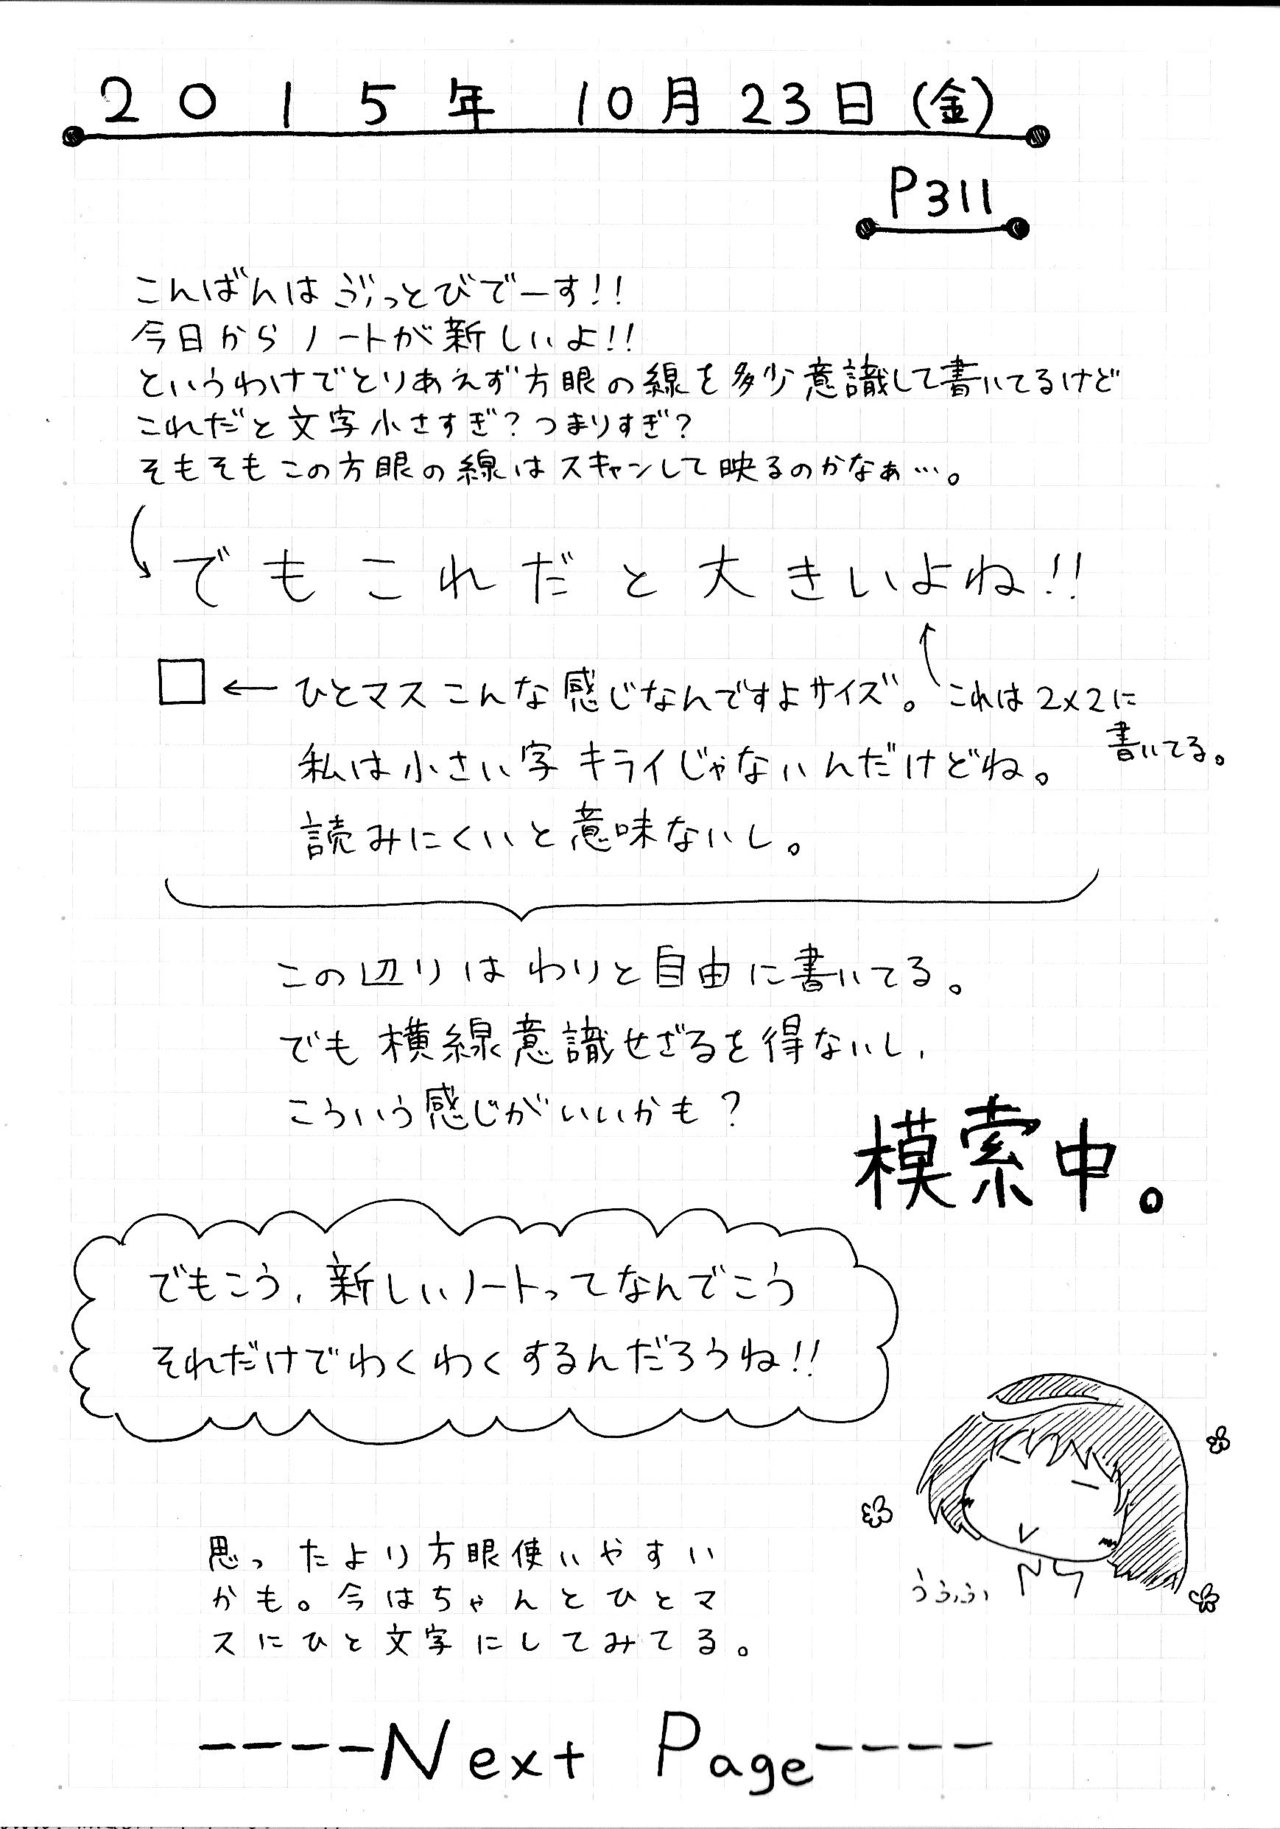 2015年 10月23日(金)
P311
こんばんはぶっとびでーす!!
今日からノートが新しいよ!!
というわけでとりあえず方眼の線を多少意識して書いてるけど
これだと文字小さすぎ?つまりすぎ?
そもそもこの方眼の線はスキャンして映るのかなぁ…。
でもこれだと大きいよね!!
←ひとマスこんな感じなんですよサイズ。
これは2×2に
書いてる。
私は小さい字キライじゃないんだけどね。
読みにくいと意味ないし。
この辺りはわりと自由に書いてる。
でも横線意識せざるを得ないし、
こういう感じがいいかも?
模索中。
でもこう、新しいノートってなんでこう
それだけでわくわくするんだろうね!!
うふふ
思ったより方眼使いやすい
かも。今はちゃんとひとマ
スにひと文字にしてみてる。
----Next Page----